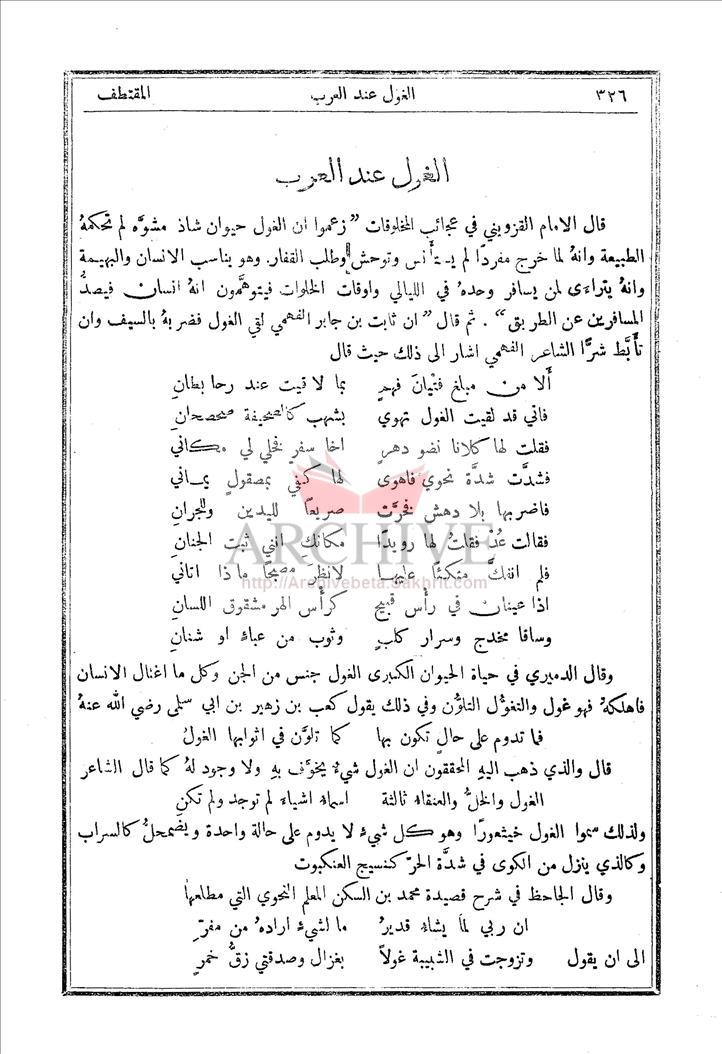 ٣٢٦ الغول عند العرب المقتطف
الغول عند العرب
قال الامام القزويني في عجائب المخلوقات "زعموا ان الغول حيوان شاذ مشوَّه لم تحكمهُ
الطبيعة وانهُ لما خرج مفردًا لم يستأنس وتوحش وطلب القفار. وهو يناسب الانسان والبهيمة
وانهُ يتراءَى لمن يسافر وحدهُ في الليالي واوقات الخلوات فيتوهَّمون انهُ انسان فيصدُّ
المسافرين عن الطريق". ثم قال "ان ثابت بن جابر الفهمي لقي الغول فضربهُ بالسيف وان
تأَبَّط شرًّا الشاعر الفهمي اشار الى ذلك حيث قال
أَلا من مبلغ فتيانَ فهمٍ بما لاقيت عند رحا بطانِ
فاني قد لقيت الغول تهوي بشهب كالصحيفة صحصحانِ
فقلت لها كلانا نضو دهرٍ اخا سفرٍ فخلي لي مكاني
فشدَّت شدَّة نحوي فاهوى لها كفي بمصقولٍ يماني
فاضربها بلا دهش فخرَّت صريعًا لليدين وللجرانِ
فقالت عُدْ فقلتُ لها رويدًا مكانكِ انني ثبت الجنانِ
فلم انفكَّ متكئًا عليها لانظر مصبحًا ماذا اتاني
اذا عينان في رأْس قبيح كرأْس الهر مشقوق اللسانِ
وساقا مخدج وسرار كلبٍ وثوب من عباءٍ او شنانِ
وقال الدميري في حياة الحيوان الكبرى الغول جنس من الجن وكل ما اغتال الانسان
فاهلكهُ فهو غول والتغوُّل التلوُّن وفي ذلك يقول كعب بن زهير بن ابي سلمى رضي الله عنهُ
فما تدوم على حالٍ تكون بها كما تلوَّن في اثوابها الغولُ
قال والذي ذهب اليهِ المحققون ان الغول شيءٌ يخوَّف بهِ ولا وجود لهُ كما قال الشاعر
الغول والخلُّ والعنقاءُ ثالثة اسماءُ اشياءَ لم توجد ولم تكنِ
ولذلك سموا الغول خيثعورًا وهو كل شيءٍ لا يدوم على حالة واحدة ويضمحلُّ كالسراب
وكالذي ينزل من الكوى في شدَّة الحرّ كنسيج العنكبوت
وقال الجاحظ في شرح قصيدة محمد بن السكن المعلم النحوي التي مطلعها
ان ربي لما يشاءُ قديرٌ ما لشيءٍ ارادهُ من مفرِّ
الى ان يقول وتزوجت في الشبيبة غولاً بغزال وصدقتي زقُّ خمرِ
ARCHIVE
http://Archivebeta.Sakhrit.com